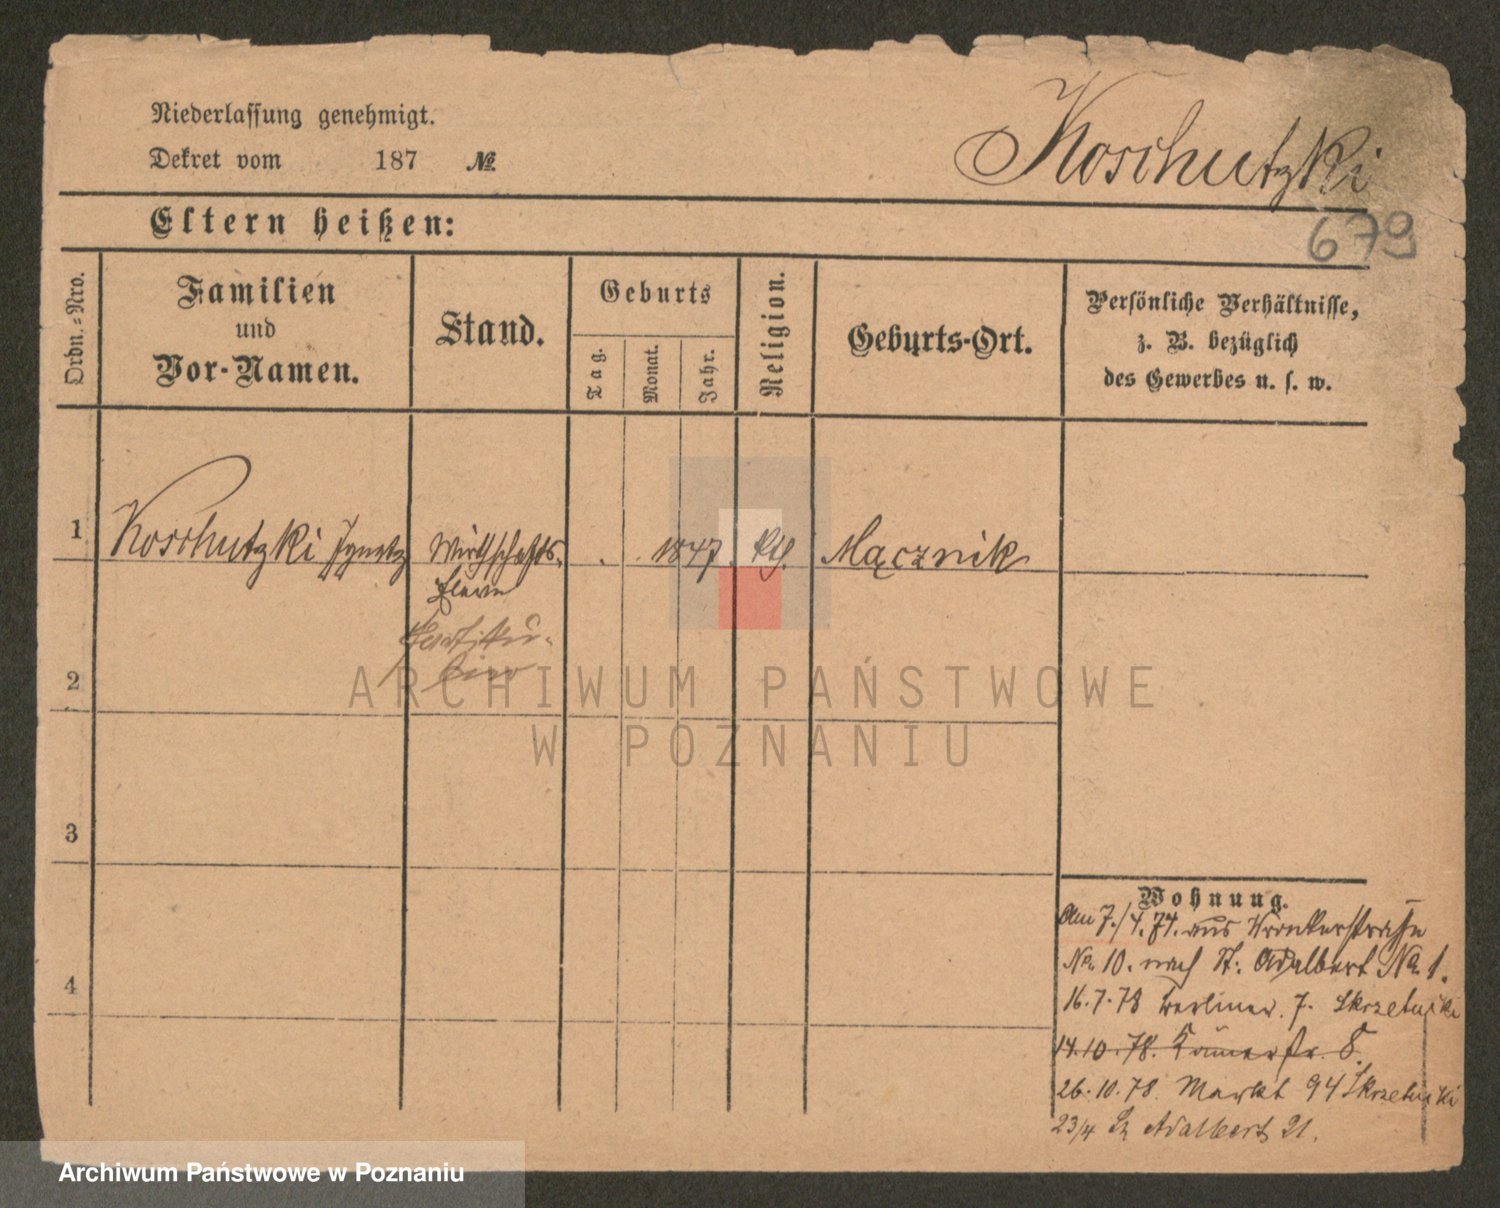 Niederlassung genehmigt.
Dekret vom 187 №
Koschutzki
679
Eltern heißen:
Ordn.-Nro.
Familien
und
Vor-Namen.
Stand.
Geburts
Tag.
Monat.
Jahr.
Religion.
Geburts-Ort.
Persönliche Verhältnisse,
z. B. bezüglich
des Gewerbes u. s. w.
1 Koschutzki Ignatz Wirthschafts- . . 1847 kth. Mącznik
Eleve
2
3
4
Wohnung.
Am 7./4. 74. aus Kronkerstrasse
No. 10. nach St. Adalbert No. 1.
16.7.78 Berliner. 7. Skrzetuski
14.10.78. str. 8.
26.10.78. Markt 94 Skrzetuski
23/4 Adalbert 21.
ARCHIWUM PAŃSTWOWE
W POZNANIU
Archiwum Państwowe w Poznaniu